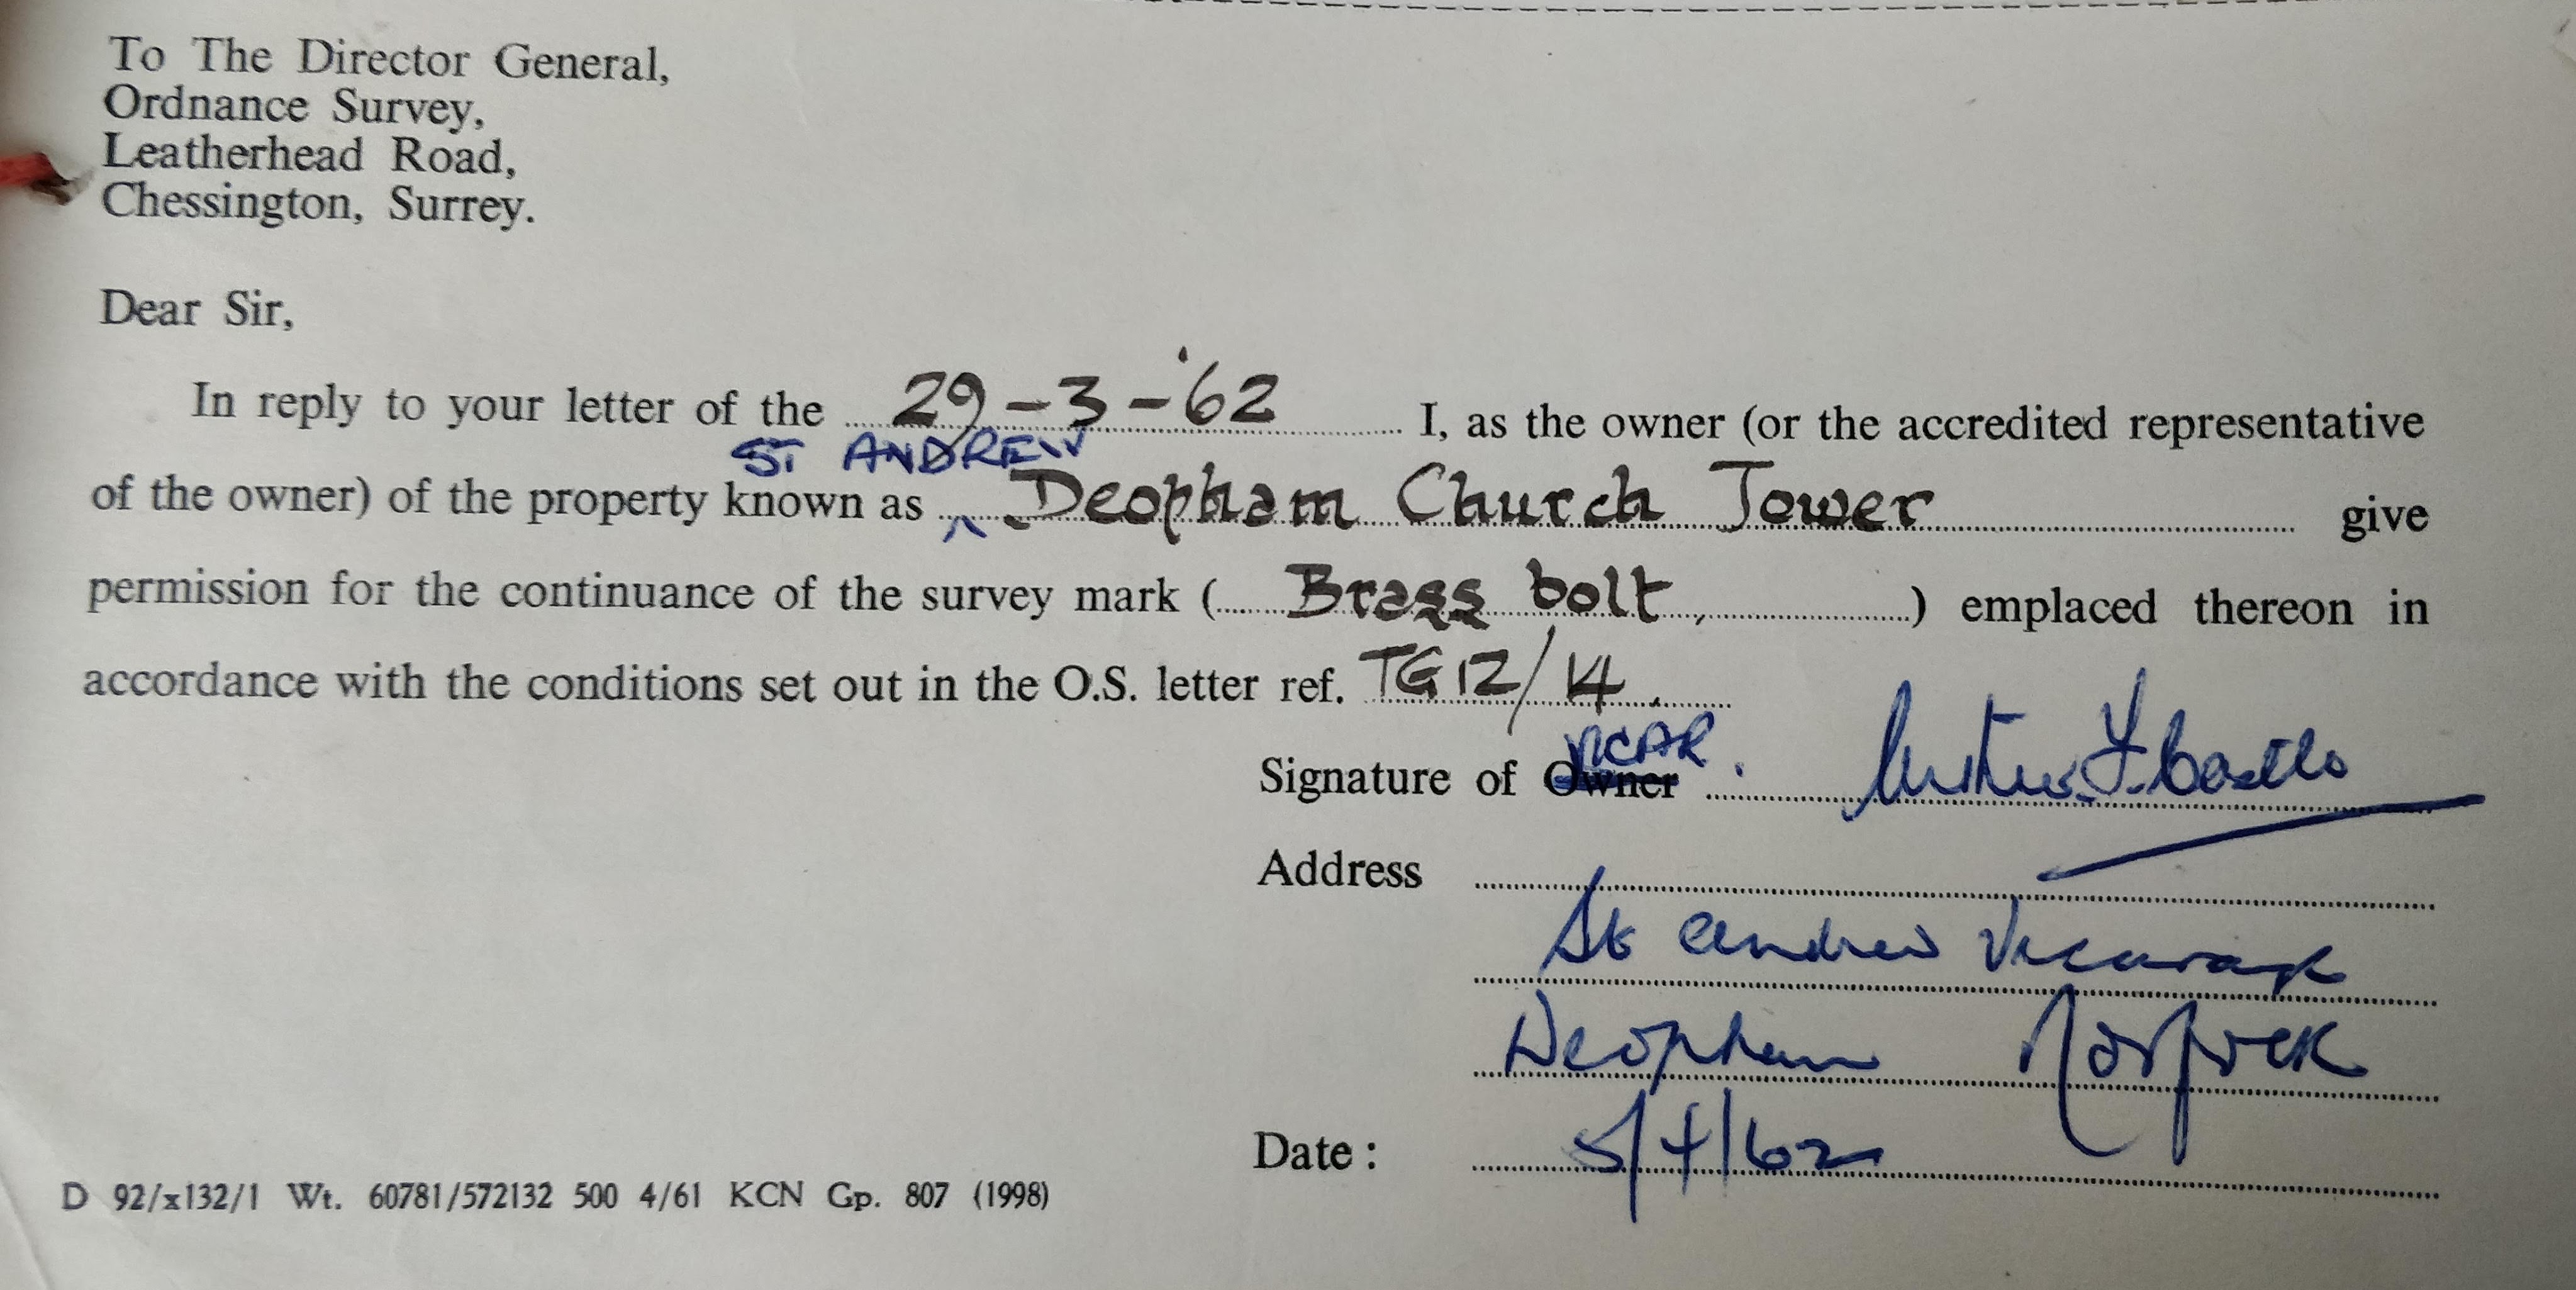 To The Director General,
Ordnance Survey,
Leatherhead Road,
Chessington, Surrey.
Dear Sir,
In reply to your letter of the 29-3-'62 I, as the owner (or the accredited representative
ST ANDREW
of the owner) of the property known as Deopham Church Tower give
permission for the continuance of the survey mark ( Brass bolt, ) emplaced thereon in
accordance with the conditions set out in the O.S. letter ref. TG12/14.
VICAR.
Signature of Owner
Address
St Andrew Vicarage
Deopham Norfolk
Date: 5/4/62
D 92/x132/1 Wt. 60781/572132 500 4/61 KCN Gp. 807 (1998)